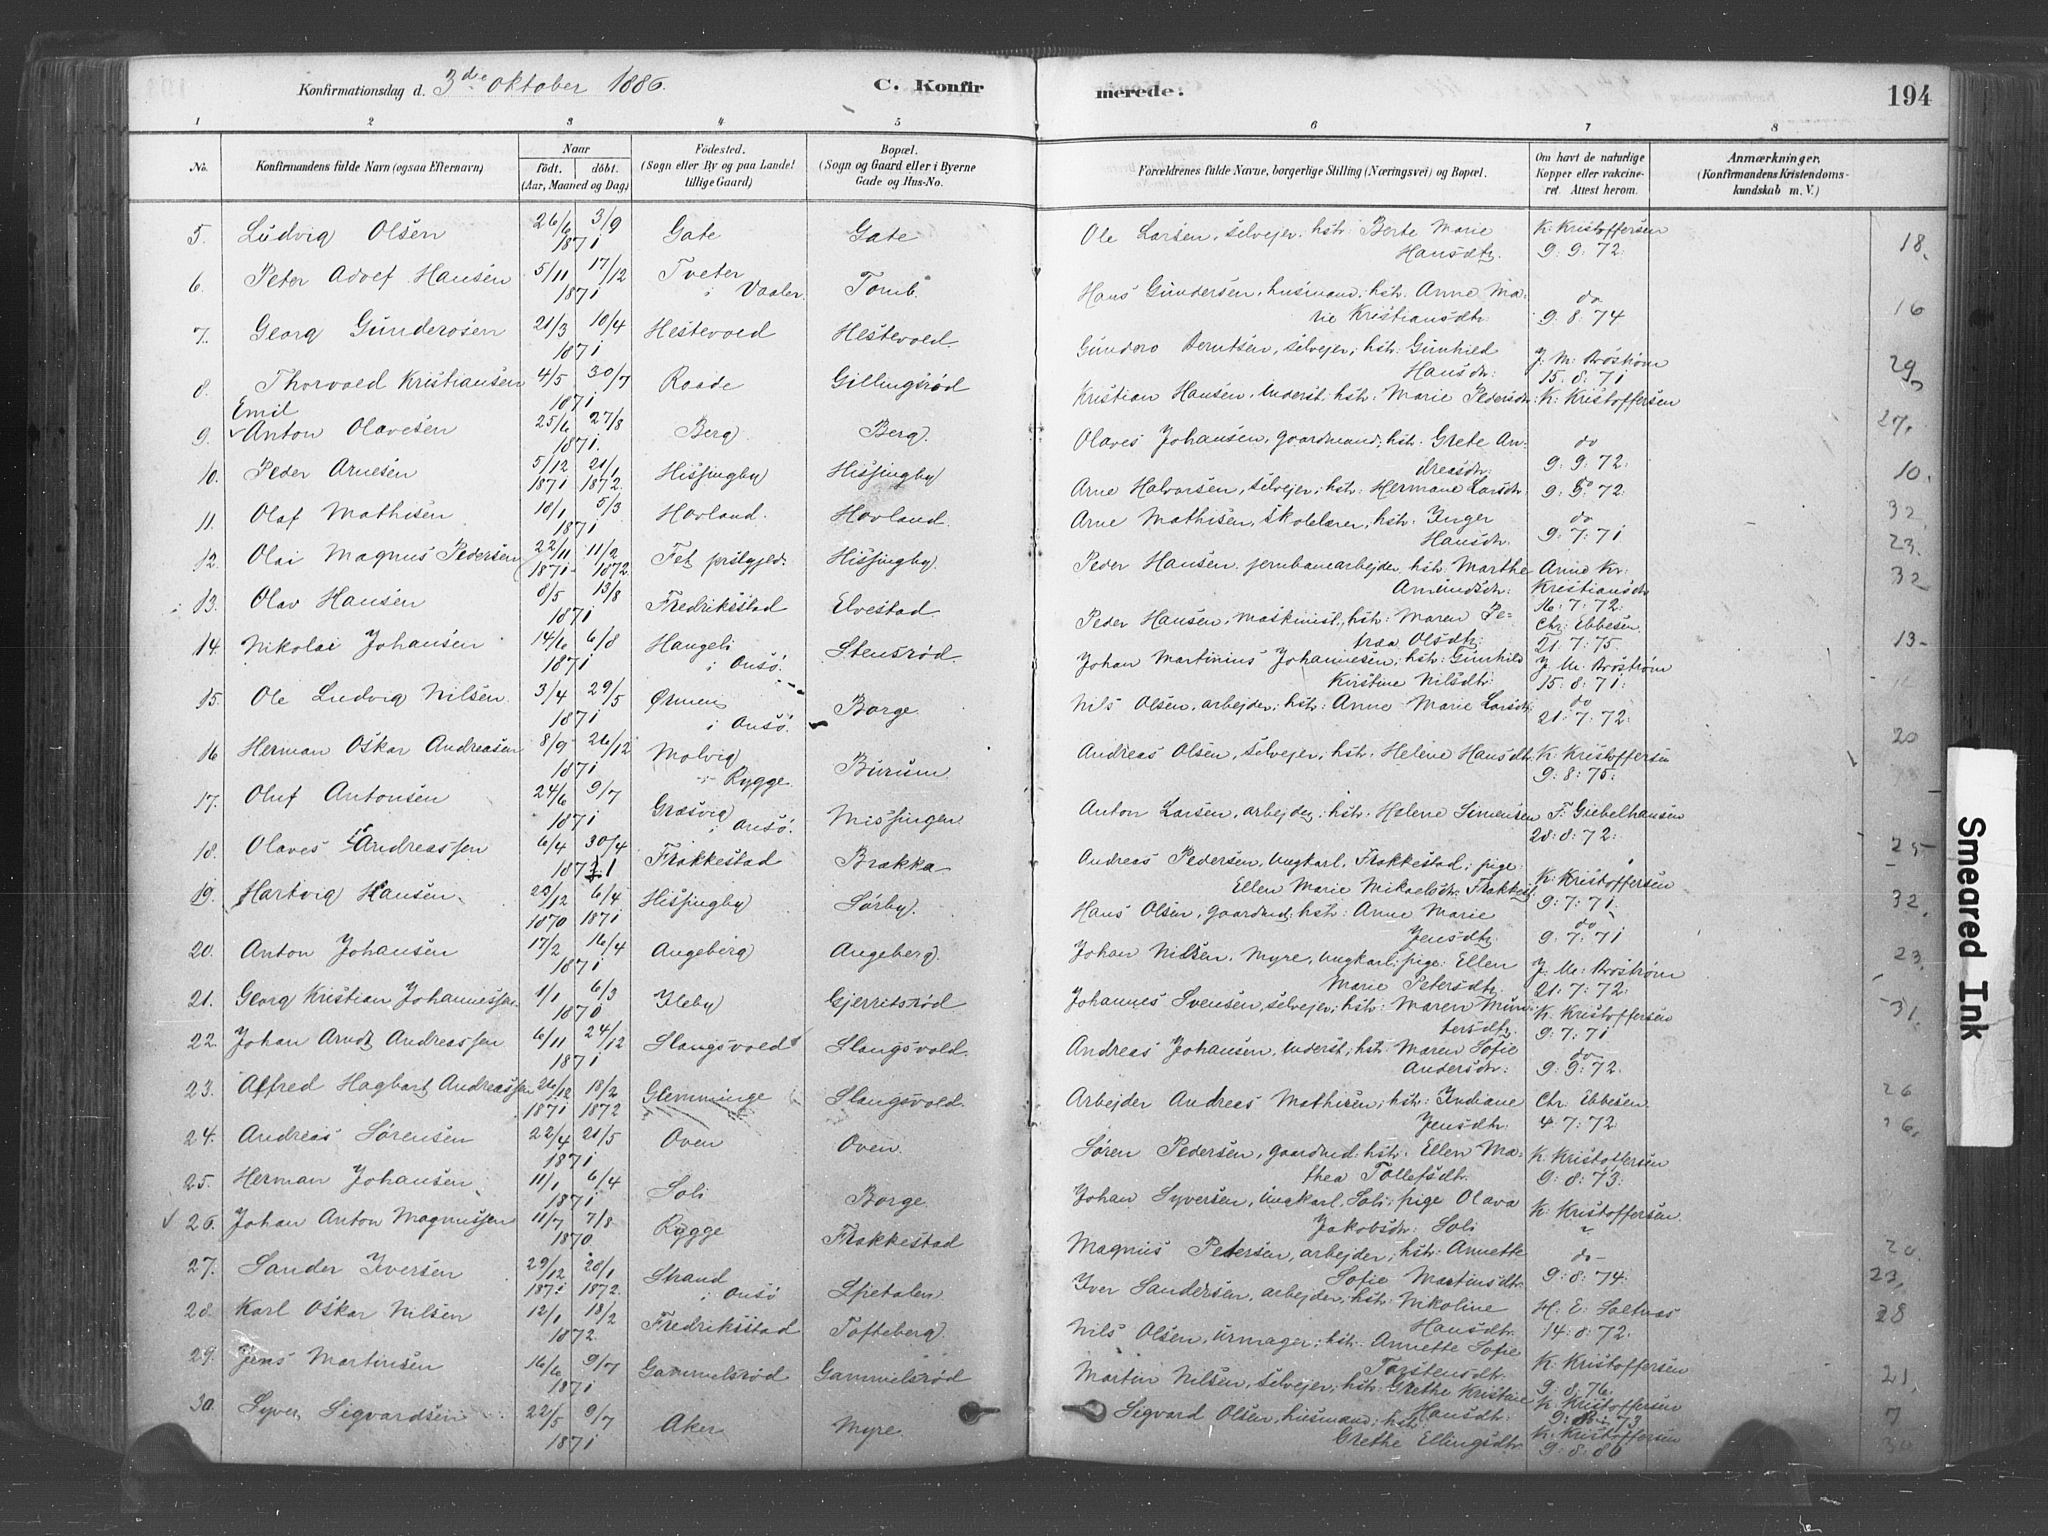 Konfirmationsdag d. 3die oktober 1886.
C. Konfirmerede.
194
1 2 3 4 5 6 7 8
No.
Konfirmandens fulde Navn (ogsaa Efternavn)
Naar
født. døbt.
(Aar, Maaned og Dag)
Fødested.
(Sogn eller By og paa Landet
tillige Gaard)
Bopæl.
(Sogn og Gaard eller i Byerne
Gade og Hus-No.
Forældrenes fulde Navne, borgerlige Stilling (Næringsvei) og Bopæl.
Om havt de naturlige
Kopper eller vakcine-
ret. Attest herom.
Anmærkninger.
(Konfirmandens Kristendoms-
kundskab m. V.)
5. Ludvig Olsen 26/6 3/9 1871 Gate Gate Ole Larsen, selvejer; hstr: Berte Marie Hansdtr. K. Kristoffersen 9:9:72. 18.
6. Peter Adolf Hansen 5/11 17/12 1871 Tveter i Vaaler Tomb. Hans Gundersen, husmand; hstr. Anne Marie Kristiansdtr. do 9:8:74 16
7. Georg Gundersen 21/3 10/4 1871 Hestevold Hestevold. Berntsen, selvejer; hstr: Gunhild Hansdtr. 15:8:71 29
8. Thorvald Kristiansen 4/5 30/7 1871 Raade Gillingsrød Kristian Hansen, inderst; hstr: Marie Pedersdtr. K. Kristoffersen 27.
9. Emil Anton Olavesen 25/6 27/8 1871. Berg Berg. Olaves Johansen, gaardmand; hstr: Grete Andreasdtr. do 9:9:72.
10. Peder Arnesen 5/12 1871 21/1 1872. Hissingby Hissingby Arne Halvorsen, selvejer; hstr: Hermane Larsdtr. do 9:9:72 10.
11. Olaf Mathisen 10/1 5/3 1871 Hovland. Hovland. Arne Mathisen, skolelærer, hstr: Inger Hansdtr. do 9:7:71 32
12. Olai Magnus Pedersen 22/11 1871 11/2 1872. Fet prstgjeld. Hissingby. Peder Hansen, jernbanearbejder, hstr: Marthe Amundsdtr. Anne Kr. Kristiansdtr 16:7:72. 23.
13. Olav Hansen 8/5 13/8 1871 Fredrikstad Elvestad Peder Hansen, maskinist, hstr: Maren Petrea Olsdtr. Chr. Ebbesen. 21:7:75. 32
14. Nikolai Johansen 14/6 6/8 1871 Haugeli i Onsø. Stensrød. Johan Martinius Johannesen, hstr: Gunhild Kirstine Nilsdtr. 15:8:71. 13
15. Ole Ludvig Nilsen 3/4 29/5 1871 Ørmen i Onsø. Borge Nils Olsen, arbejder; hstr: Anne Marie Larsdtr. do 21:7:72.
16 Herman Oskar Andreasen 8/9 26/12 1871 Molvig Rygge. Burum Andreas Olsen, selvejer; hstr: Helene Hansdtr. K. Kristoffersen 9:8:75. 20
17. Oluf Antonsen 24/6 9/7 1871 Græsvig i Onsø. Missingen Anton Larsen, arbejder; hstr: Helene Simensen F. Giebelhausen 28:8:72.
18. Olaves Andreassen 6/4 30/4 1871 Frakkestad Brakka Andreas Pedersen, ungkarl, Frakkestad; pige: Ellen Marie Mikaelsdtr. Frakkest. K. Kristoffersen 9:7:71. 25
19. Hartvig Hansen 23/12 1870 6/4 1871 Hissingby Sørby. Hans Olsen, gaardmd; hstr: Anne Marie Jensdtr. do 9:7:71 32.
20. Anton Johansen 17/2 16/4 1871. Angeberg Angeberg. Johan Nilsen, Myre, ungkarl; pige: Ellen Marie Petersdtr. 21:7:72. 23.
21. Georg Kristian Johannessen 1/1 6/3 1870 Ileby Gjerritsrød Johannes Svensen, selvejer; hstr: Maren K. Kristoffersen 9:7:71 31.
22. Johan Arndt Andreassen 6/11 24/12 1871 Slangsvold Slangsvold. Andreas Johansen, inderst; hstr: Maren Sofie Andersdtr. do 9:9:72.
23. Alfred Hagbart Andreassen 26/12 1871 18/2 1872 Glemminge Slangsvold. Arbejder Andreas Mathisen; hstr: Indiane Jensdtr. Chr. Ebbesen. 4:7:72 26
24. Andreas Sørensen 22/4 21/5 1871 Oven Oven. Søren Pedersen, gaardmd. hstr: Ellen Mathea Tollefsdtr. K. Kristoffersen 9:8:73.
25. Herman Johansen 11/1 6/4 1871 Soli Borge. Johan Syversen, ungkarl, Soli; pige Olava Jakobsdtr. Soli K. Kristoffersen.
26. Johan Anton Magnussen 11/7 7/8 1870 Rygge Frakkestad Magnus Petersen, arbejder; hstr: Annette Sofie Martinsdtr. do 9:8:74. 20.
27. Sander Iversen 29/12 1871 28/1 1872. Strand i Onsø Spetalen. Iver Sandersen, arbejder; hstr: Nikoline Hansdtr. H. E. 14:8:72. 23.
28. Karl Oskar Nilsen 12/1 18/2 1872. Fredrikstad Tofteberg. Nils Olsen, urmager; hstr: Annette Sofie Torstensdtr. K. Kristoffersen 9:8:76 28
29. Jens Martinsen 16/6 9/7 1871 Gammelsrød Gammelsrød Martin Nilsen, selvejer; hstr: Grethe Kristine Hansdtr. K. Kristoffersen 21.
30. Syver Sigvardsen 22/5 9/7 1871 Aker Myre. Sigvard Olsen, husmand; hstr: Grethe Ellingsdtr. K. Kristoffersen 9:8:80 7
Smeared Ink